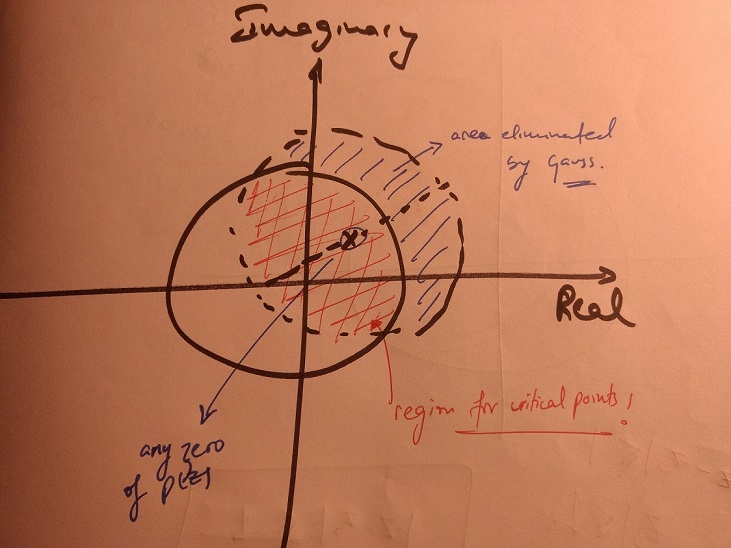 Imaginary
area eliminated
by Gauss.
Real
region for critical points!
any zero
of p(z)